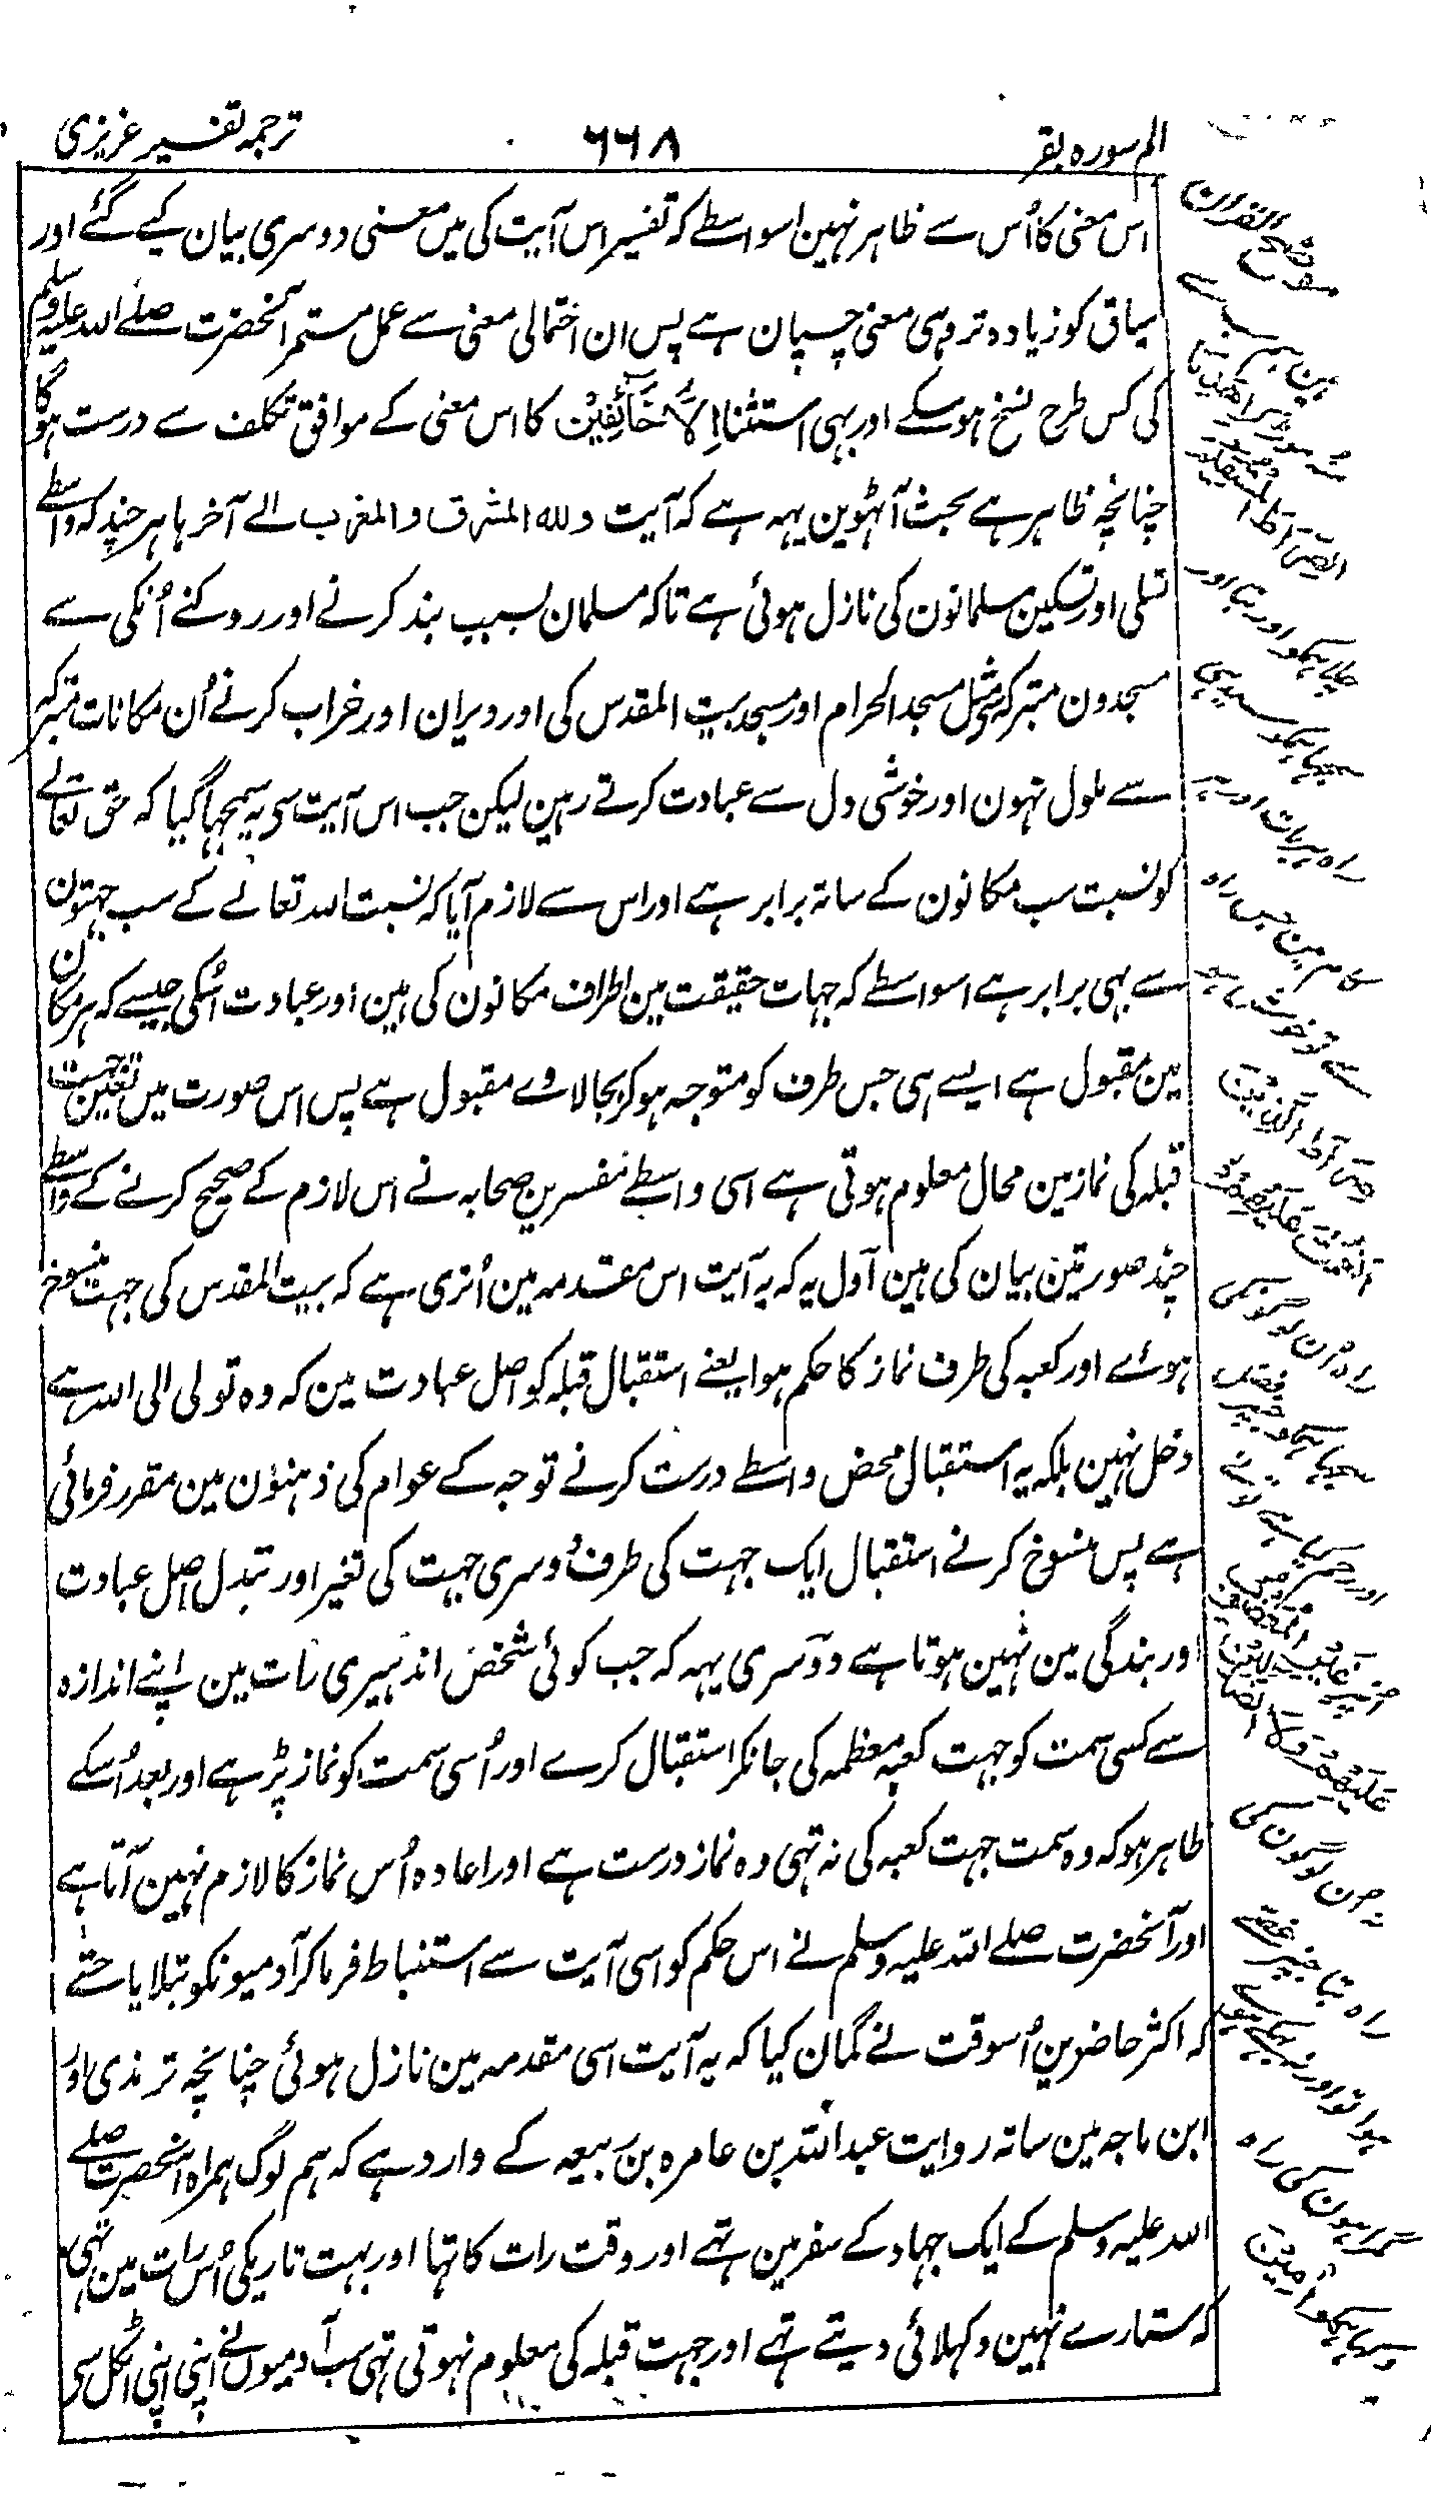 الم سورہ بقر
۶۶۸
ترجمہ تفسیر عزیزی
اس معنی کا اُس سے ظاہر نہین اسواسطے کہ تفسیر اس آیت کی میں معنی دوسری بیان کیے گئے اور
سیاق کو زیادہ تر وہی معنی چسپان ہے پس ان احتمالی معنی سے عمل مستمر آنحضرت صلے اللہ علیہ وسلم
کی کس طرح نسخ ہو سکے اور بہی استثنا اِلَّا خَآئِفِیْنَ کا اس معنی کے موافق تکلف سے درست ہوگا
چنانچہ ظاہر ہے بحث آٹہوین یہہ ہے کہ آیت وللہ المشرق والمغرب الے آخرہا ہر چند کہ واسطے
تسلی اور تسکین مسلمانون کی نازل ہوئی ہے تاکہ مسلمان بسبب بند کرنے اور روکنے اُنکی سے
مسجدون متبرکہ مثل مسجد الحرام اور مسجد بیت المقدس کی اور ویران اور خراب کرنے اُن مکانات متبرکہ
سے ملول نہون اور خوشی دل سے عبادت کرتے رہین لیکن جب اس آیت سی یہ سمجہا گیا کہ حق تعالے
کو نسبت سب مکانون کے ساتہ برابر ہے اور اس سے لازم آیا کہ نسبت اللہ تعالے کے سب جہتون
سے بہی برابر ہے اسواسطے کہ جہات حقیقت مین اطراف مکانون کی ہین اور عبادت اُسکی جیسے کہ ہر مکان
مین مقبول ہے ایسے ہی جس طرف کو متوجہ ہوکر بجا لاوے مقبول ہے پس اس صورت میں تعین جہت
قبلہ کی نماز مین محال معلوم ہوتی ہے اسی واسطے مفسرین صحابہ نے اس لازم کے صحیح کرنے کے واسطے
چند صورتین بیان کی ہین اول یہ کہ یہ آیت اس مقدمہ مین اُتری ہے کہ بیت المقدس کی جہت منسوخ
ہوئے اور کعبہ کی طرف نماز کا حکم ہوا یعنے استقبال قبلہ کو اصل عبادت مین کہ وہ تولی الی اللہ ہے
دخل نہین بلکہ یہ استقبال محض واسطے درست کرنے توجہ کے عوام کی ذہنون مین مقرر فرمائی
ہے پس منسوخ کرنے استقبال ایک جہت کی طرف دوسری جہت کی تغیر اور تبدل اصل عبادت
اور بندگی مین نہین ہوتا ہے دوسری یہہ کہ جب کوئی شخص اندہیری رات مین اپنے اندازہ
سے کسی سمت کو جہت کعبہ معظمہ کی جانکر استقبال کرے اور اُسی سمت کو نماز پڑہے اور بعد اُسکے
ظاہر ہو کہ وہ سمت جہت کعبہ کی نہ تہی وہ نماز درست ہے اور اعادہ اُس نماز کا لازم نہین آتا ہے
اور آنحضرت صلے اللہ علیہ وسلم نے اس حکم کو اسی آیت سے استنباط فرماکر آدمیونکو بتلایا حتے
کہ اکثر حاضرین اُسوقت نے گمان کیا کہ یہ آیت اسی مقدمہ مین نازل ہوئی چنانچہ ترمذی اور
ابن ماجہ مین ساتہ روایت عبداللہ بن عامرہ بن ربیعہ کے وارد ہے کہ ہم لوگ ہمراہ آنحضرت صلے
اللہ علیہ وسلم کے ایک جہاد کے سفر مین تہے اور وقت رات کا تہا اور بہت تاریکی اُس رات مین تہی
کہ ستارے نہین دکہلائی دیتے تہے اور جہت قبلہ کی معلوم نہوتی تہی سب آدمیون نے اپنی اپنی اٹکل سی
الصراط المستقیم
چلا ہمکو اور بتا اور
راہ پر بات اور
صراط الذین
انعمت علیہم
راہ اُن لوگونکی
غیر المغضوب
علیہم ولا الضالین
نہ اُن لوگون کی
گمراہون کی راہ
آمین